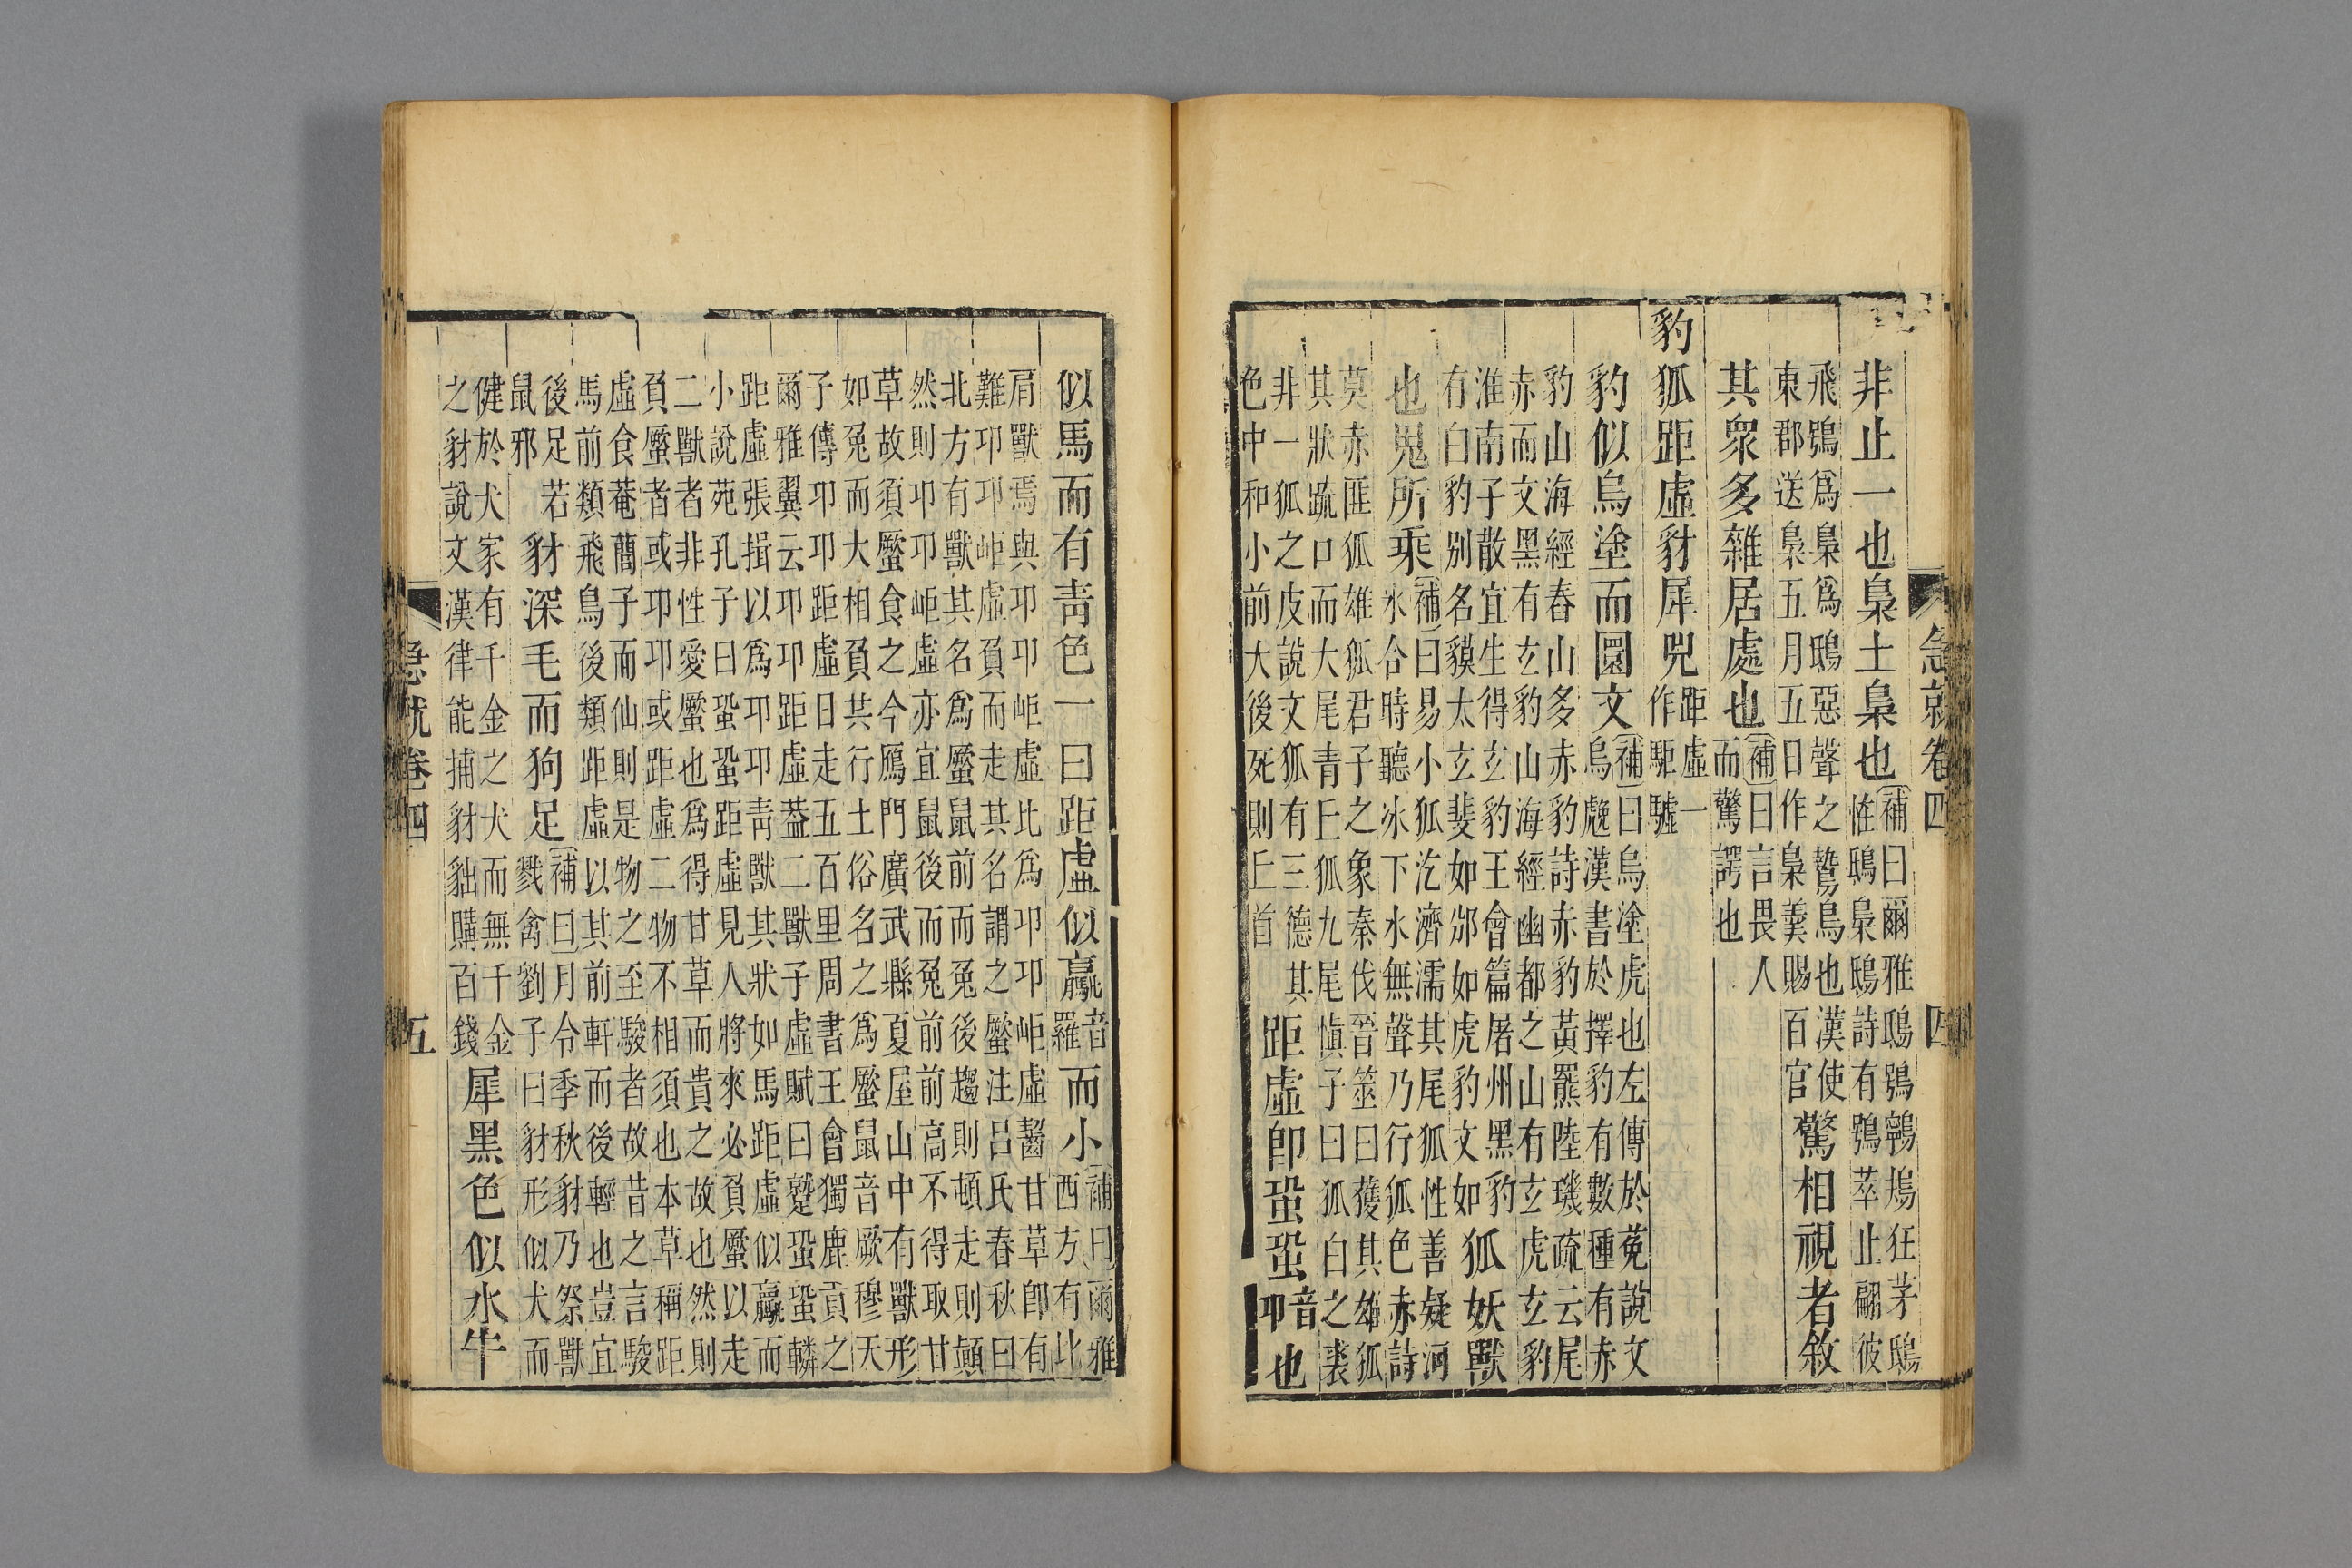 急就卷四 四
非止一也梟土梟也
補曰爾雅鴟鴞鸋鳺狂茅鴟
怪鴟梟鴟詩有鴞萃止翩彼
飛鴞爲梟爲鴟惡聲之鷙鳥也漢使
東郡送梟五月五日作梟羹賜百官
驚相視者敘
其衆多雜居處也
補曰言畏人
而驚諤也
豹狐距虛豺犀兕
距虛一
作駏驉
豹似烏塗而圜文
補曰烏塗虎也左傳於菟說文
烏䖘漢書於擇豹有數種有赤
豹山海經舂山多赤豹詩赤豹黃羆陸璣疏云尾
赤而文黑有玄豹山海經幽都之山有玄虎玄豹
淮南子散宜生得玄豹王會篇屠州黑豹
有白豹別名貘太玄斐如邠如虎豹文如
狐妖獸
也鬼所乘
補曰易小狐汔濟濡其尾狐性善疑河
氷合時聽氷下水無聲乃行狐色赤詩
莫赤匪狐雄狐君子之象秦伐晉筮曰獲其雄狐
其狀䟽口而大尾青丘狐九尾慎子曰狐白之裘
非一狐之皮說文狐有三德其
色中和小前大後死則丘首
距虛卽蛩蛩
音
卭
也
似馬而有靑色一曰距虛似驘
音
羅
而小
補曰爾雅
西方有比
肩獸焉與卭卭岠虛比爲卭卭岠虛齧甘草卽有
難卭卭岠虛負而走其名謂之蟨注呂氏春秋曰
北方有獸其名爲蟨鼠前而兔後趨則頓走則顚
然則卭卭岠虛亦宜鼠後而兔前前高不得取甘
草故須蟨食之今鴈門廣武縣夏屋山中有獸形
如兔而大相負共行土俗名之爲蟨鼠音厥穆天
子傳卭卭距虛日走五百里周書王會獨鹿貢之
爾雅翼云卭卭距虛葢二獸子虛賦曰蹵蛩蛩轔
距虛張揖以爲卭卭靑獸其狀如馬距虛似驘而
小說苑孔子曰蛩蛩距虛見人將來必負蟨以走
二獸者非性愛蟨也爲得甘草而貴之故也然則
負蟨者或卭卭或距虛二物不相須也本草稱距
虛食菴䕡子而仙則是物之至駿者故昔之言駿
馬前類飛鳥後類距虛以其前軒而後輕也豈宜
後足若
鼠邪
豺深毛而狗足
補曰月令季秋豺乃祭獸
戮禽劉子曰豺形似犬而
健於犬家有千金之犬而無千金
之豺說文漢律能捕豺貀購百錢
犀黑色似水牛
急就卷四 五